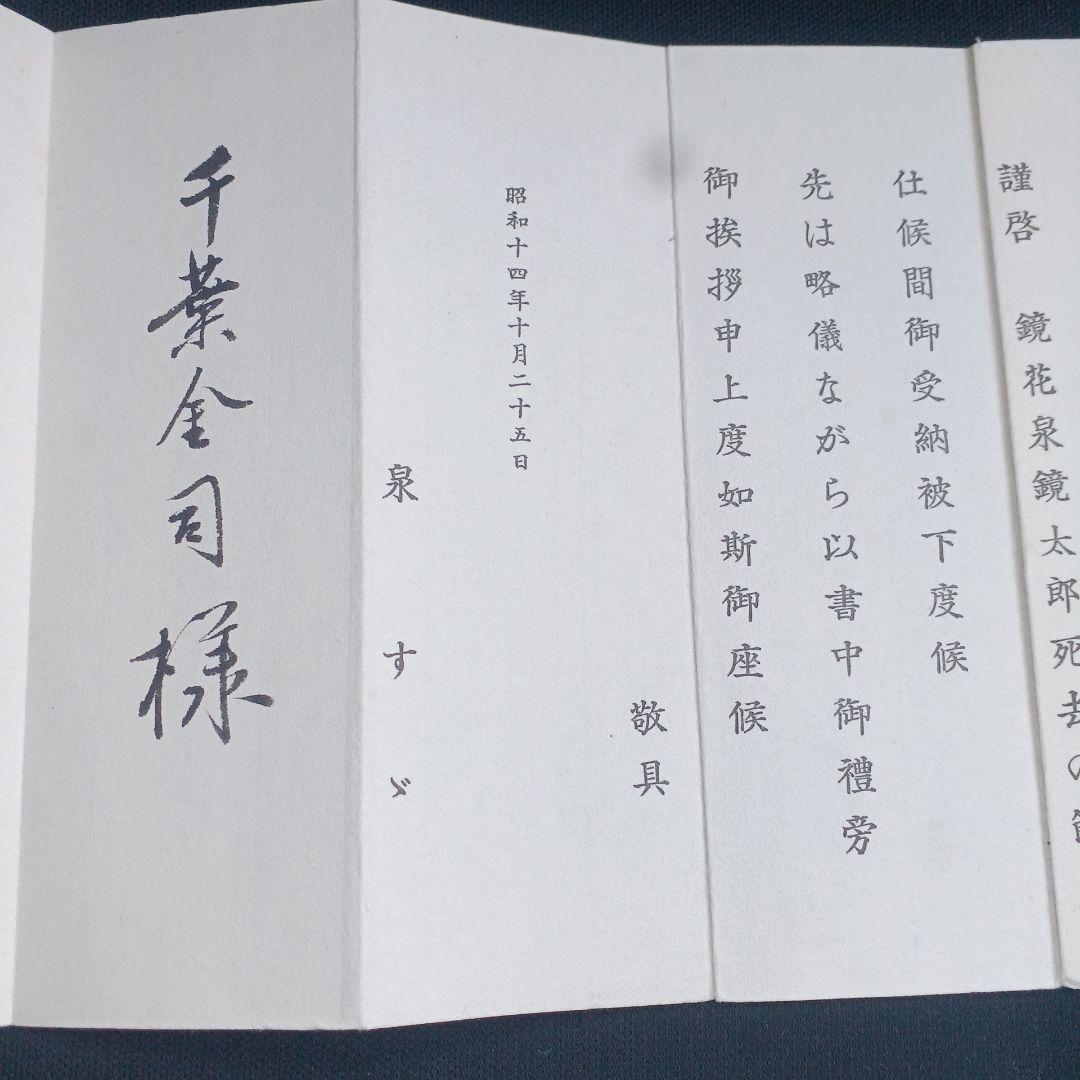 謹啓　鏡花泉鏡太郎死去の節
仕候間御受納被下度候
先は略儀ながら以書中御禮旁
御挨拶申上度如斯御座候
敬具
昭和十四年十月二十五日
泉すゞ
千葉金司様